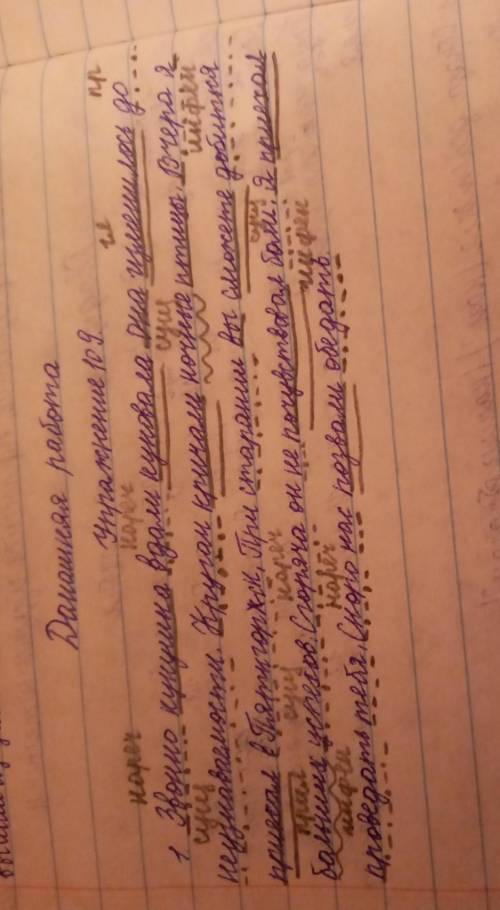 Домашняя работа
Упражнение 109
нареч нареч гл пр
1. Звонко кукушка вдали куковала Она изменилась до
сущ сущ инфин
неузнаваемости. Кругом кричали ночные птицы. Вчера я
приехал в Пятигорск. При старании вы сможете добиться
прил сущ нареч сущ
больших успехов. Сгоряча он не почувствовал боли. Я приехал
инфин нареч инфин
проведать тебя. Скоро нас позвали обедать